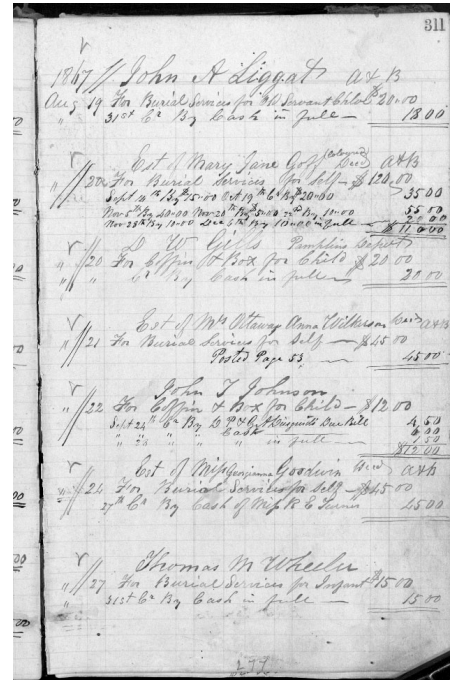 311
1867 // John A Liggat A & B
Aug 19 For Burial Services for Old Servant Chloe $20.00
" 31st Cr By Cash in full — 18.00
Est of Mary Jane Goff (Colored) Decd A&B
" // 20 For Burial Services for Self — $120.00
Sept 10th By $15.00 Oct 19th Cr By $20.00 35.00
Nov 5th By 40.00 Nov 20th By $5.00 22nd By 10.00 55.00
Nov 28th By 10.00 Dec 5th By 10.00 in full — 20.00
$110.00
D W Gills Pamplins Depot
" // 20 For Coffin & Box for Child — $20.00
" Cr By Cash in full — 20.00
Est of Mrs Ottaway Anna Wilkerson Decd A&B
" // 21 For Burial Services for Self — $45.00
Posted Page 53 — 45.00
John T Johnson
" // 22 For Coffin & Box for Child — $12.00
Sept 24th Cr By Due Bill 4.50
" " " " Cash 6.00
" 28 " " " in full — 1.50
$12.00
Est of Miss Georgianna Goodwin Decd A&B
" // 24 For Burial Services for Self — $45.00
" 27th Cr By Cash of Miss R E 45.00
Thomas M Wheeler
" // 27 For Burial Services for Infant $15.00
" 31st Cr By Cash in full — 15.00
277